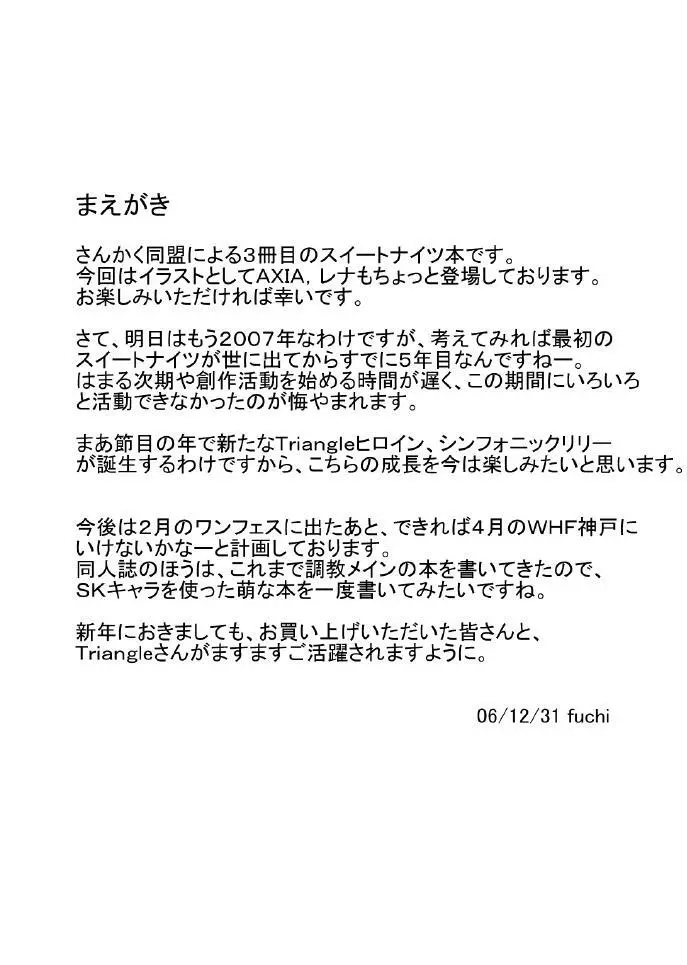 まえがき
さんかく同盟による３冊目のスイートナイツ本です。
今回はイラストとしてAXIA，レナもちょっと登場しております。
お楽しみいただければ幸いです。
さて、明日はもう２００７年なわけですが、考えてみれば最初の
スイートナイツが世に出てからすでに５年目なんですねー。
はまる次期や創作活動を始める時間が遅く、この期間にいろいろ
と活動できなかったのが悔やまれます。
まあ節目の年で新たなTriangleヒロイン、シンフォニックリリー
が誕生するわけですから、こちらの成長を今は楽しみたいと思います。
今後は２月のワンフェスに出たあと、できれば４月のWHF神戸に
いけないかなーと計画しております。
同人誌のほうは、これまで調教メインの本を書いてきたので、
SKキャラを使った萌な本を一度書いてみたいですね。
新年におきましても、お買い上げいただいた皆さんと、
Triangleさんがますますご活躍されますように。
06/12/31 fuchi